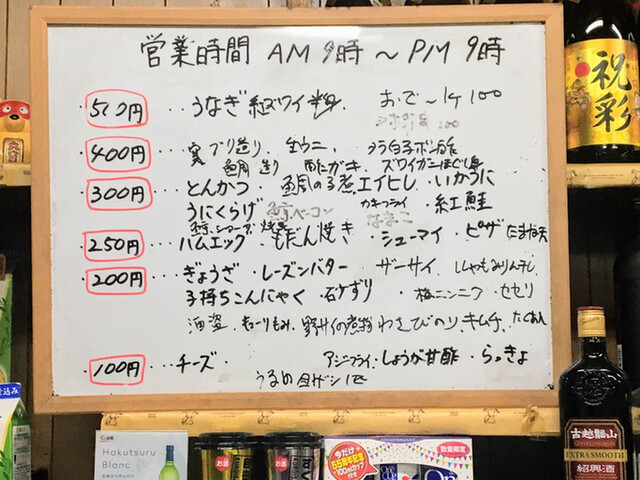 営業時間 AM 9時 〜 PM 9時
500円 ・・・うなぎ 紅ズワイ おで〜ん 1ケ 100
400円 ・・・ ブリ造り 生ウニ タラ白子ポン酢
鯛造り ズワイガニほぐし身
300円 ・・・とんかつ 鯛の子煮 エイヒレ・いかうに
うにくらげ 鯨ベーコン カキフライ なまこ ・紅鮭
250円 ・・・ハムエッグ・もだん焼き ・シューマイ ・ピザ たまね天
200円 ・・・ぎょうざ ・レーズンバター ザーサイ ・ししゃもみりん干し
子持ちこんにゃく ・石ケずり ・梅ニンニク ・セセリ
酒盗 ・わさびのり キムチ たくあん
100円 ・・・チーズ・ アジフライ・しょうが甘酢・らっきょ
うるめ 1匹
祝彩
Hakutsuru
Blanc
お酒
お酒
今だけ
65周年記念
100mlカップ
付き
数量限定
古越龍山
EXTRA SMOOTH
紹興酒